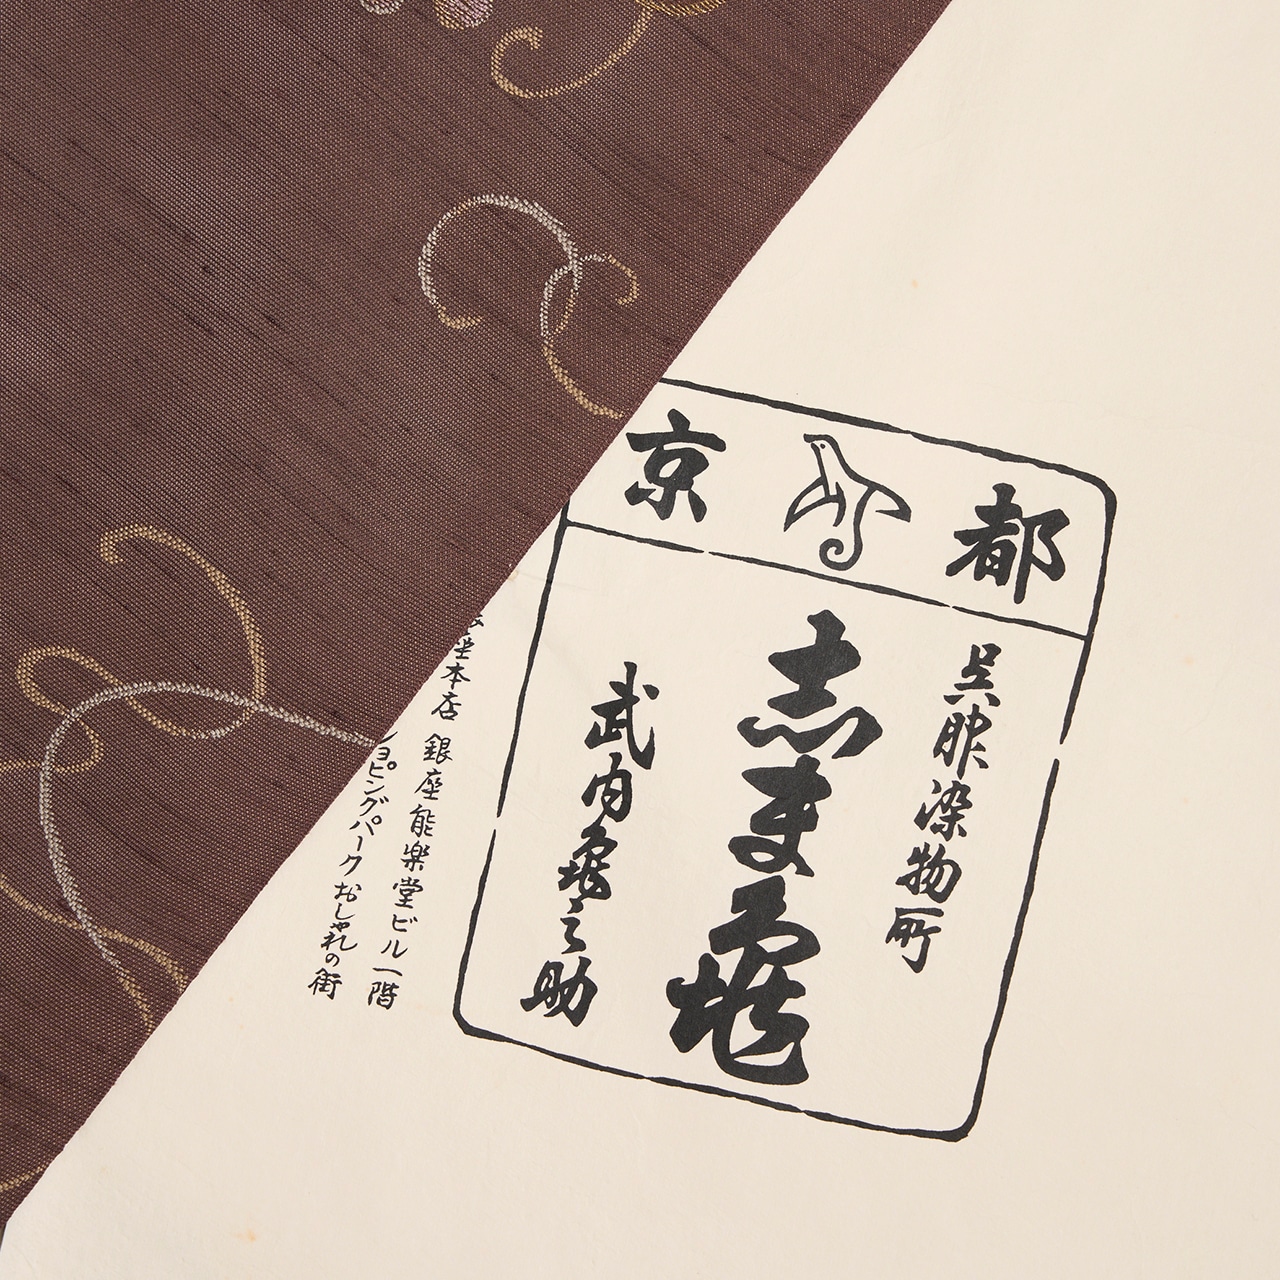 京都
呉服染物所
志ま亀
武内亀之助
本店 銀座能楽堂ビル一階
ョピングパーク おしゃれの街